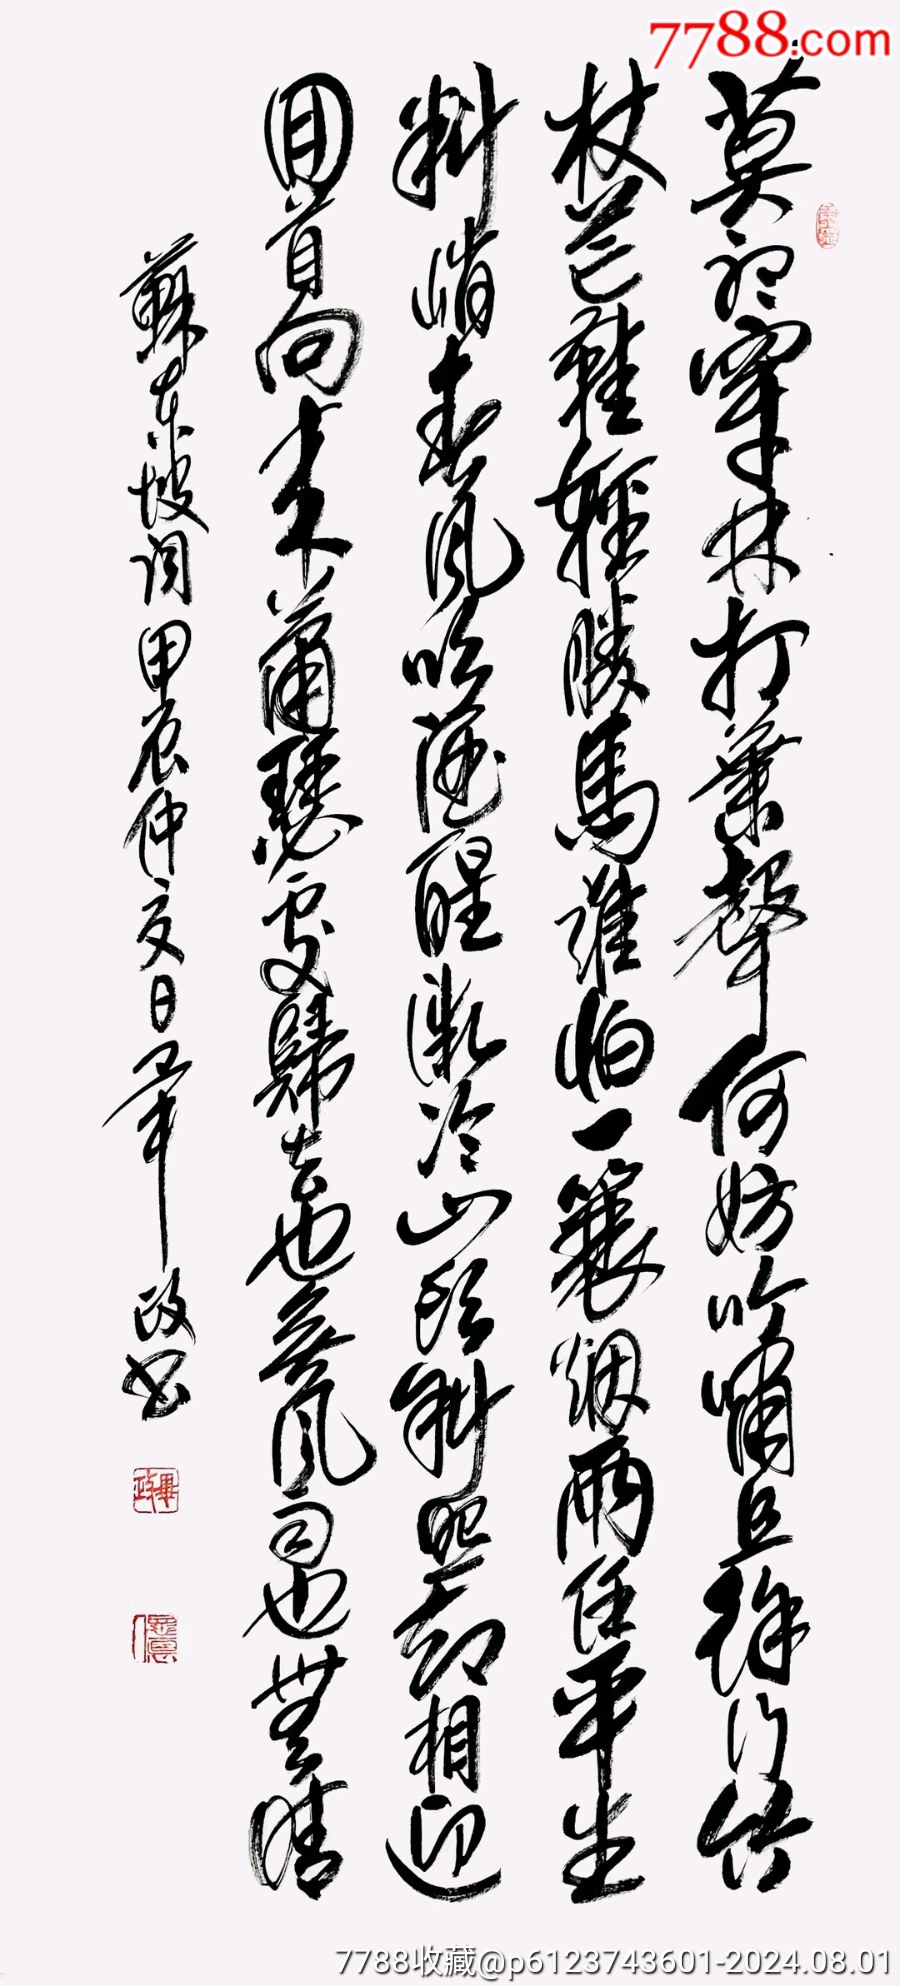 7788.com
莫聽穿林打葉聲何妨吟嘯且徐行竹
杖芒鞋輕勝馬誰怕一蓑烟雨任平生
料峭春風吹酒醒微冷山頭斜照却相迎
回首向来蕭瑟處歸去也無風雨也無晴
蘇東坡詞甲辰仲夏日畢政書
畢政
7788收藏@p6123743601-2024.08.01